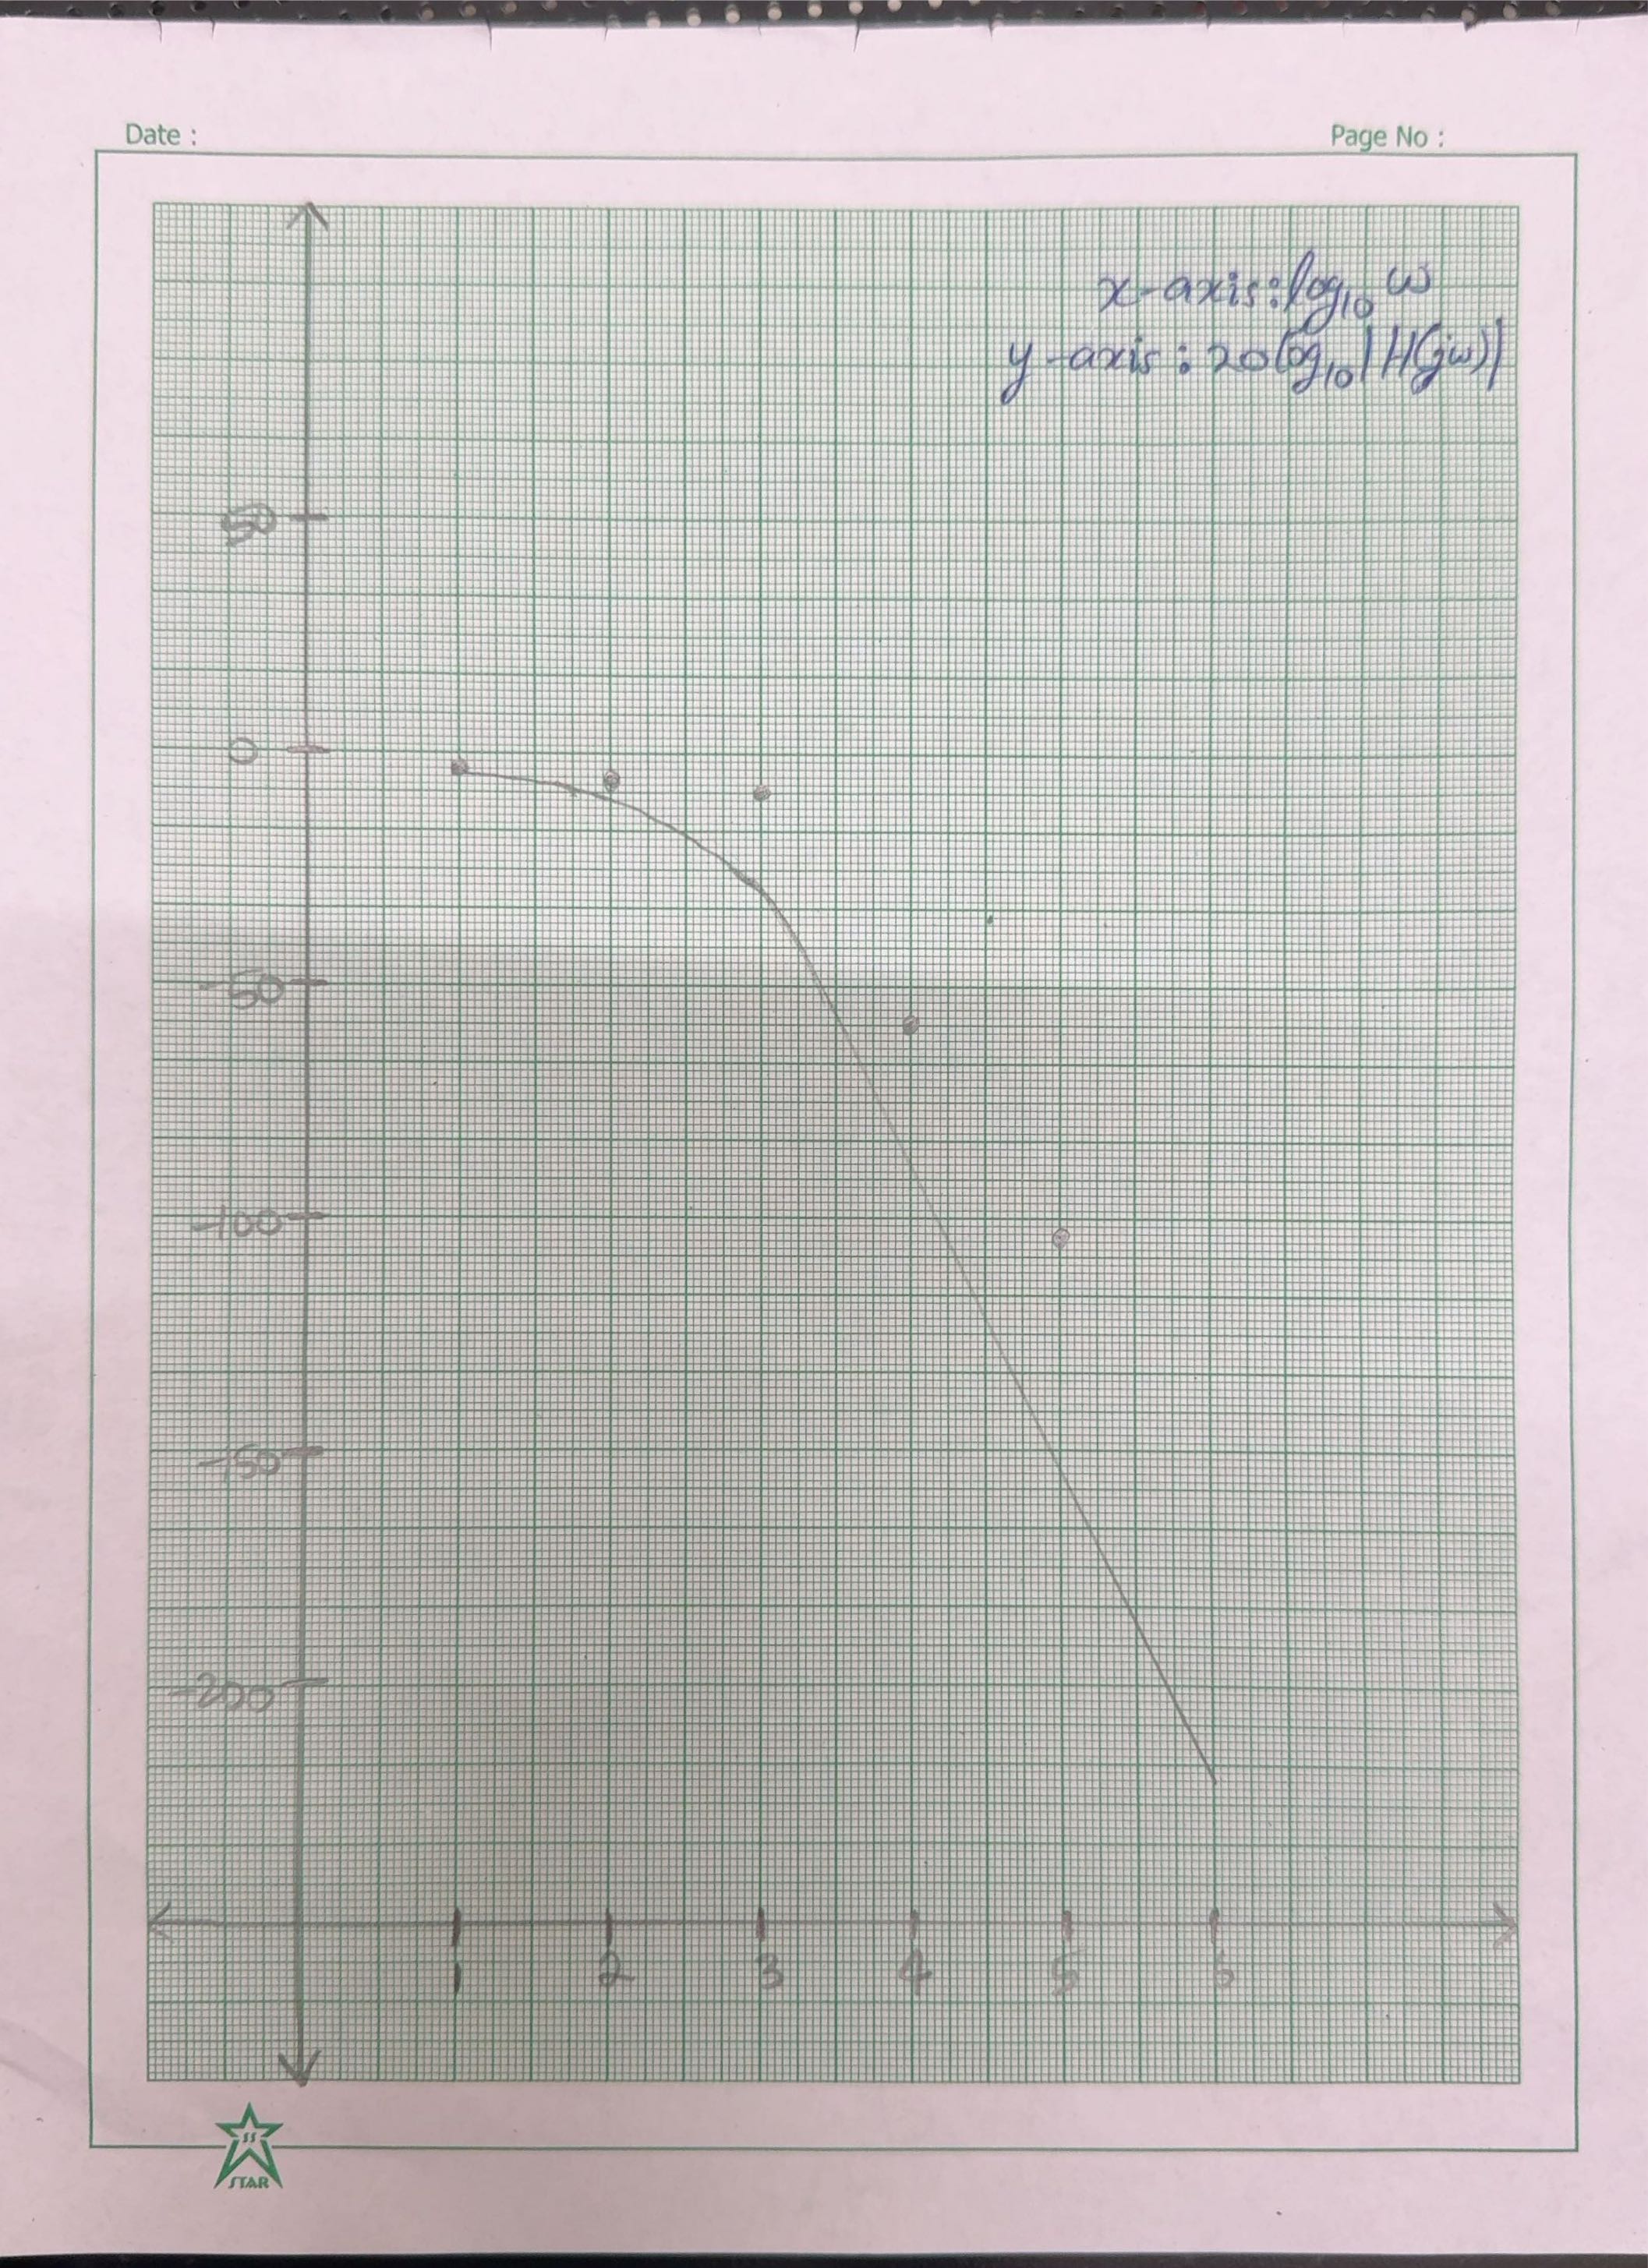 Date :
Page No :
x-axis: log₁₀ ω
y-axis: 20 log₁₀ |H(jω)|
50
0
-50
-100
-150
-200
1 2 3 4 5 6
SS
STAR